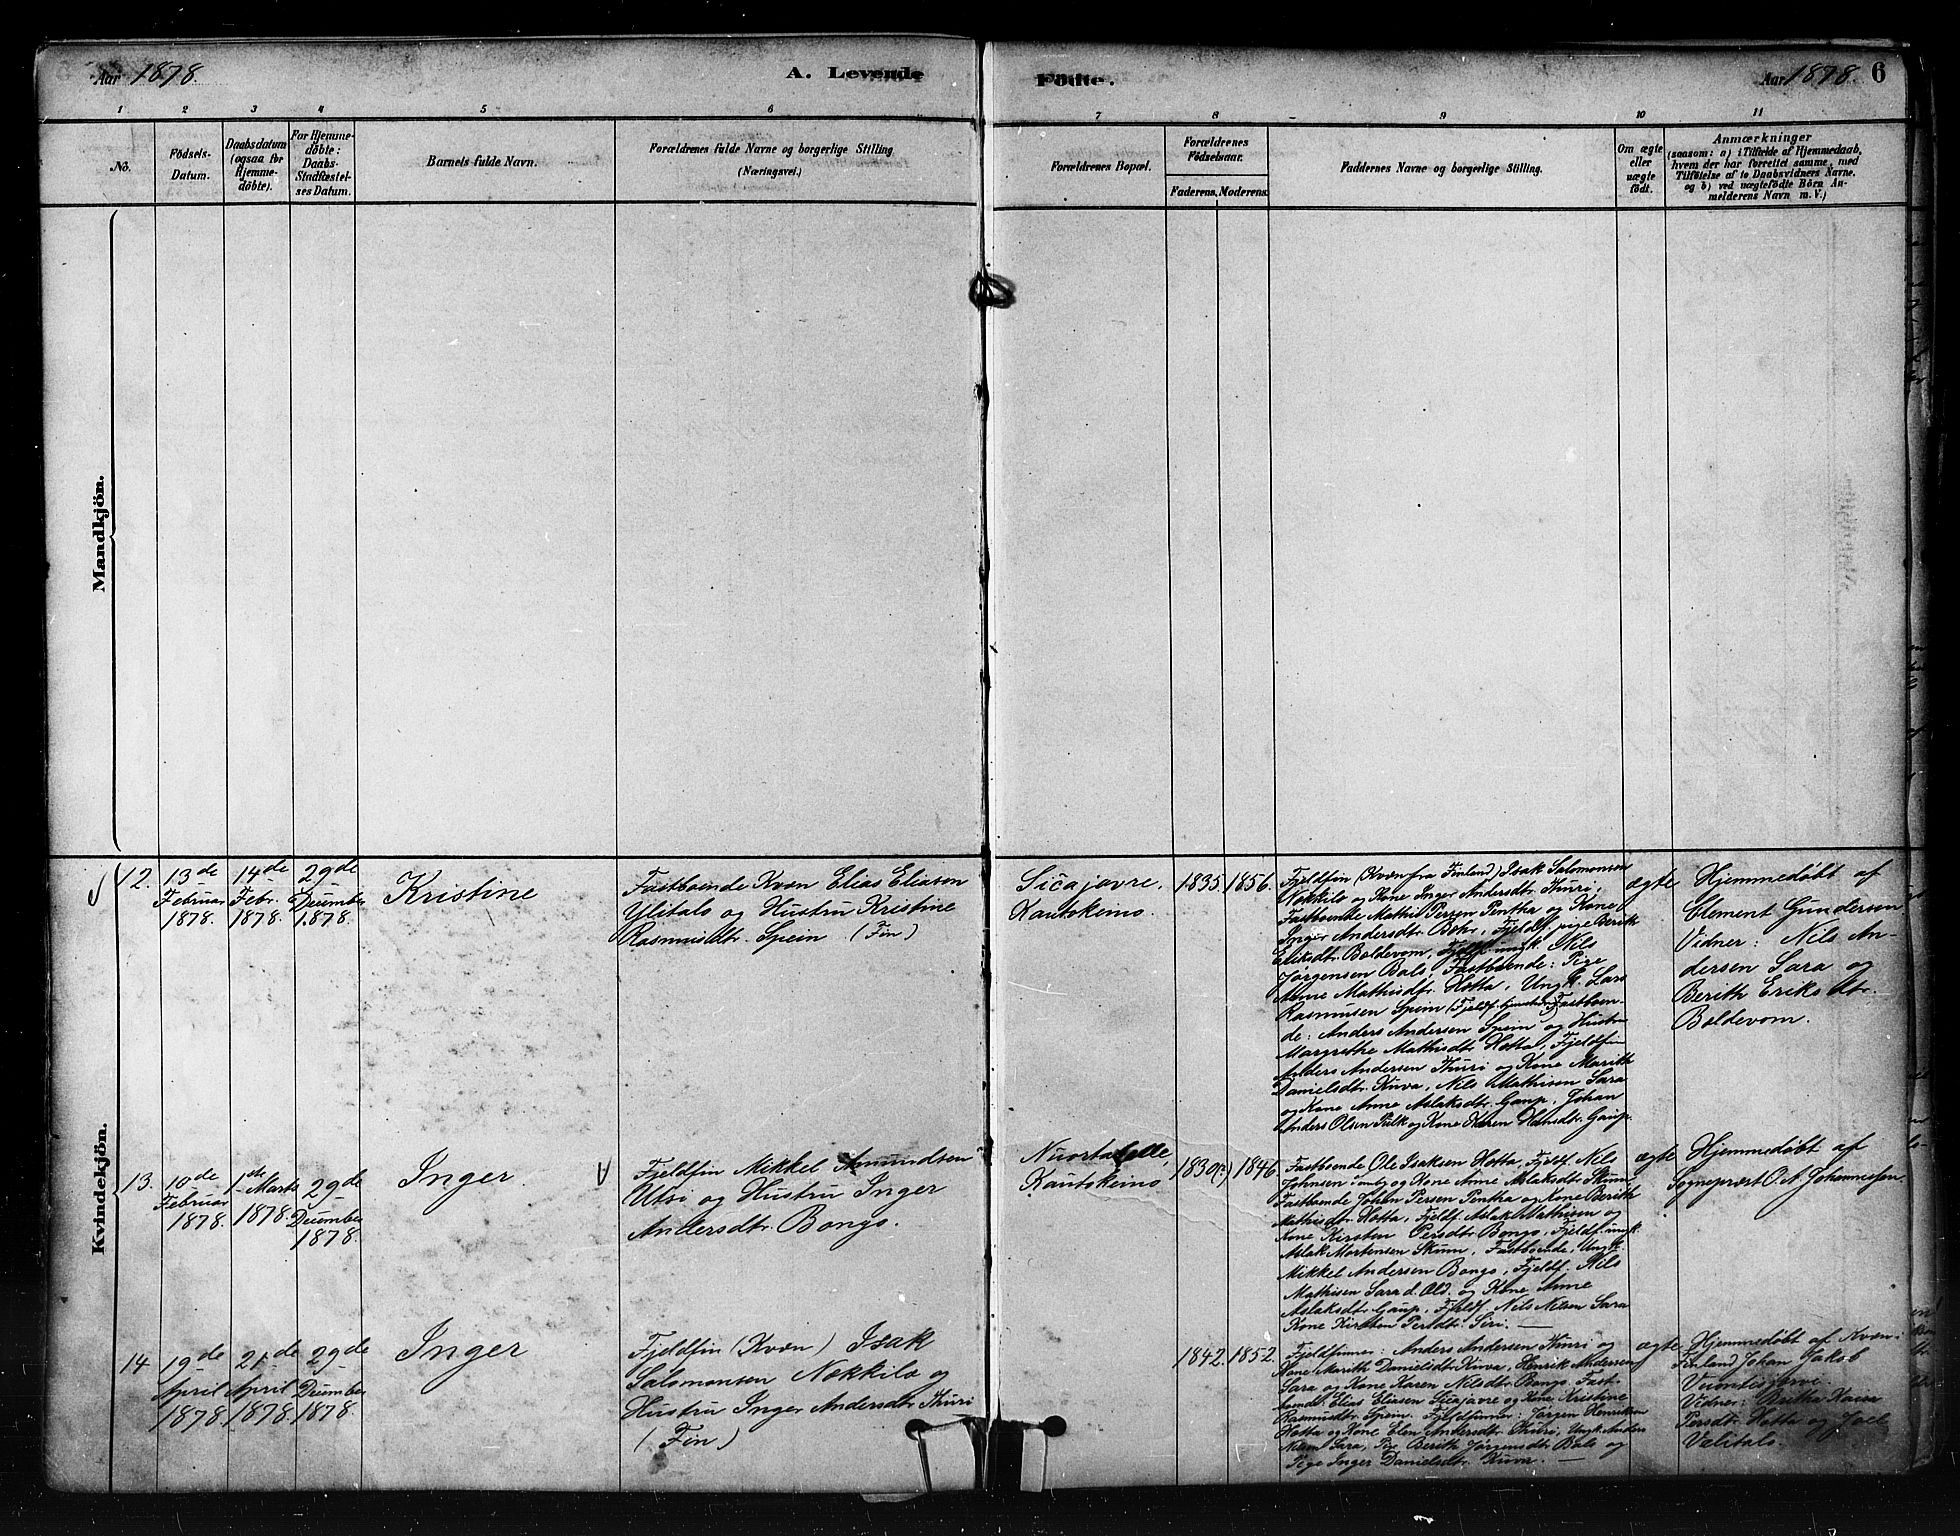 Aar 1878.
A. Levende
Födte.
Aar 1878.
6
1 2 3 4 5 6 7 8 9 10 11
No.
Födsels-
Datum.
Daabsdatum
(ogsaa for
Hjemme-
döbte).
For Hjemme-
döbte:
Daabs-
Stadfæstel-
ses Datum.
Barnets fulde Navn.
Forældrenes fulde Navne og borgerlige Stilling
(Næringsvei.)
Forældrenes Bopæl.
Forældrenes
Födselsaar.
Faderens. Moderens.
Faddernes Navne og borgerlige Stilling.
Om ægte
eller
uægte
födt.
Anmærkninger
(saasom: a) i Tilfælde af Hjemmedaab,
hvem der har forrettet samme, med
Tilföielse af to Daabsvidners Navne.
og b) ved uægtefödte Börn An-
melderens Navn m. V.)
Mandkjön.
Kvindekjön.
12.
13de
Februar
1878.
14de
Febr.
1878.
29de
December
1878.
Kristine
Fastboende Kvæn Elias Eliasen
Ylitalo og Hustru Kristine
Rasmusdtr. Spein (Fin)
Sicajavre.
Kautokeino.
1835. 1856.
Fjeldfin (Kvæn fra Finland) Isak Salomonsen
Nokkilo og Kone Inger Andersdtr. Thuri,
Fastboende Mathis Persen Pentha og Kone
Inger Andersdtr. Bær, Fjeldf. pige Berith
Eriksdtr. Boldevom, Fjeldf. ungk. Nils
Jørgensen Bals, Fastboende: Pige
Anne Mathisdtr. Hotta, Ungk. Lars
Rasmusen Spein (Fjeldf. tjenestedr.) Fastboen-
de: Anders Andersen Spein og Hustru
Margrethe Mathisdtr. Hotta, Fjeldfin
Anders Andersen Thuri og Kone Marith
Danielsdtr. Kuva, Nils Mathisen Sara
og Kone Anne Aslaksdtr. Gaup, Johan
Anders Olsen Pulk og Kone Karen Hansdtr. Gaup.
ægte
Hjemmedøbt af
Clement Gundersen
Vidner: Nils An-
dersen Sara og
Berith Eriksdtr.
Boldevom.
13.
10de
Februar
1878.
1ste Marts
1878.
29de
December
1878.
Inger.
Fjeldfin Mikkel Amundsen
Utsi og Hustru Inger
Andersdtr. Bongo.
Nuortatelle,
Kautokeino
1830(?) 1846
Fastboende Ole Isaksen Hotta, Fjeldf. Nils
Johnsen og Kone Anne Aslaksdtr. Skum,
Fastboende Johan Persen Pentha og Kone Berith
Mathisdtr. Hotta, Fjeldf. Aslak Mathisen og
Kone Kirsten Persdtr. Bongo, Fjeldf. ungk.
Aslak Mortensen Skum, Fastboende, Ungk.
Mikkel Andersen Bongo, Fjeldf. Nils
Mathisen Sara d. Old. og Kone Anne
Aslaksdtr. Gaup, Fjeldf. Nils Nilsen Sara
Kone Kirsten Persdtr. Siri. —
ægte
Hjemmedøbt af
Sognepræst O. A. Johannessen.
14
19de
April
1878.
21de
April
1878.
29de
December
1878.
Inger
Fjeldfin (Kvæn) Isak
Salomonsen Nokkilo og
Hustru Inger Andersdtr. Thuri
(Fin)
1842. 1852.
Fjeldfinner: Anders Andersen Thuri og
Kone Marith Danielsdtr. Kuva, Henrik Andersen
Sara og Kone Karen Nilsdtr. Bongo. Fast-
boende. Elias Eliasen Sicajavre og Kone Kristine
Rasmusdtr. Spein. Fjeldfinner: Jørgen Henriksen
Hotta og Kone Elen Andersdtr. Thuri, Ungk. Anders
Nilsen Sara, Pige Berith Jørgensdtr. Bals og
Pige Inger Danielsdtr. Kuva. —
ægte
Hjemmedøbt af Kvæn:
Finland Johan Jakob
Vuontisjærvi.
Vidner: Britha Kaisa
Persdtr. Hotta og Joel
Valitalo.